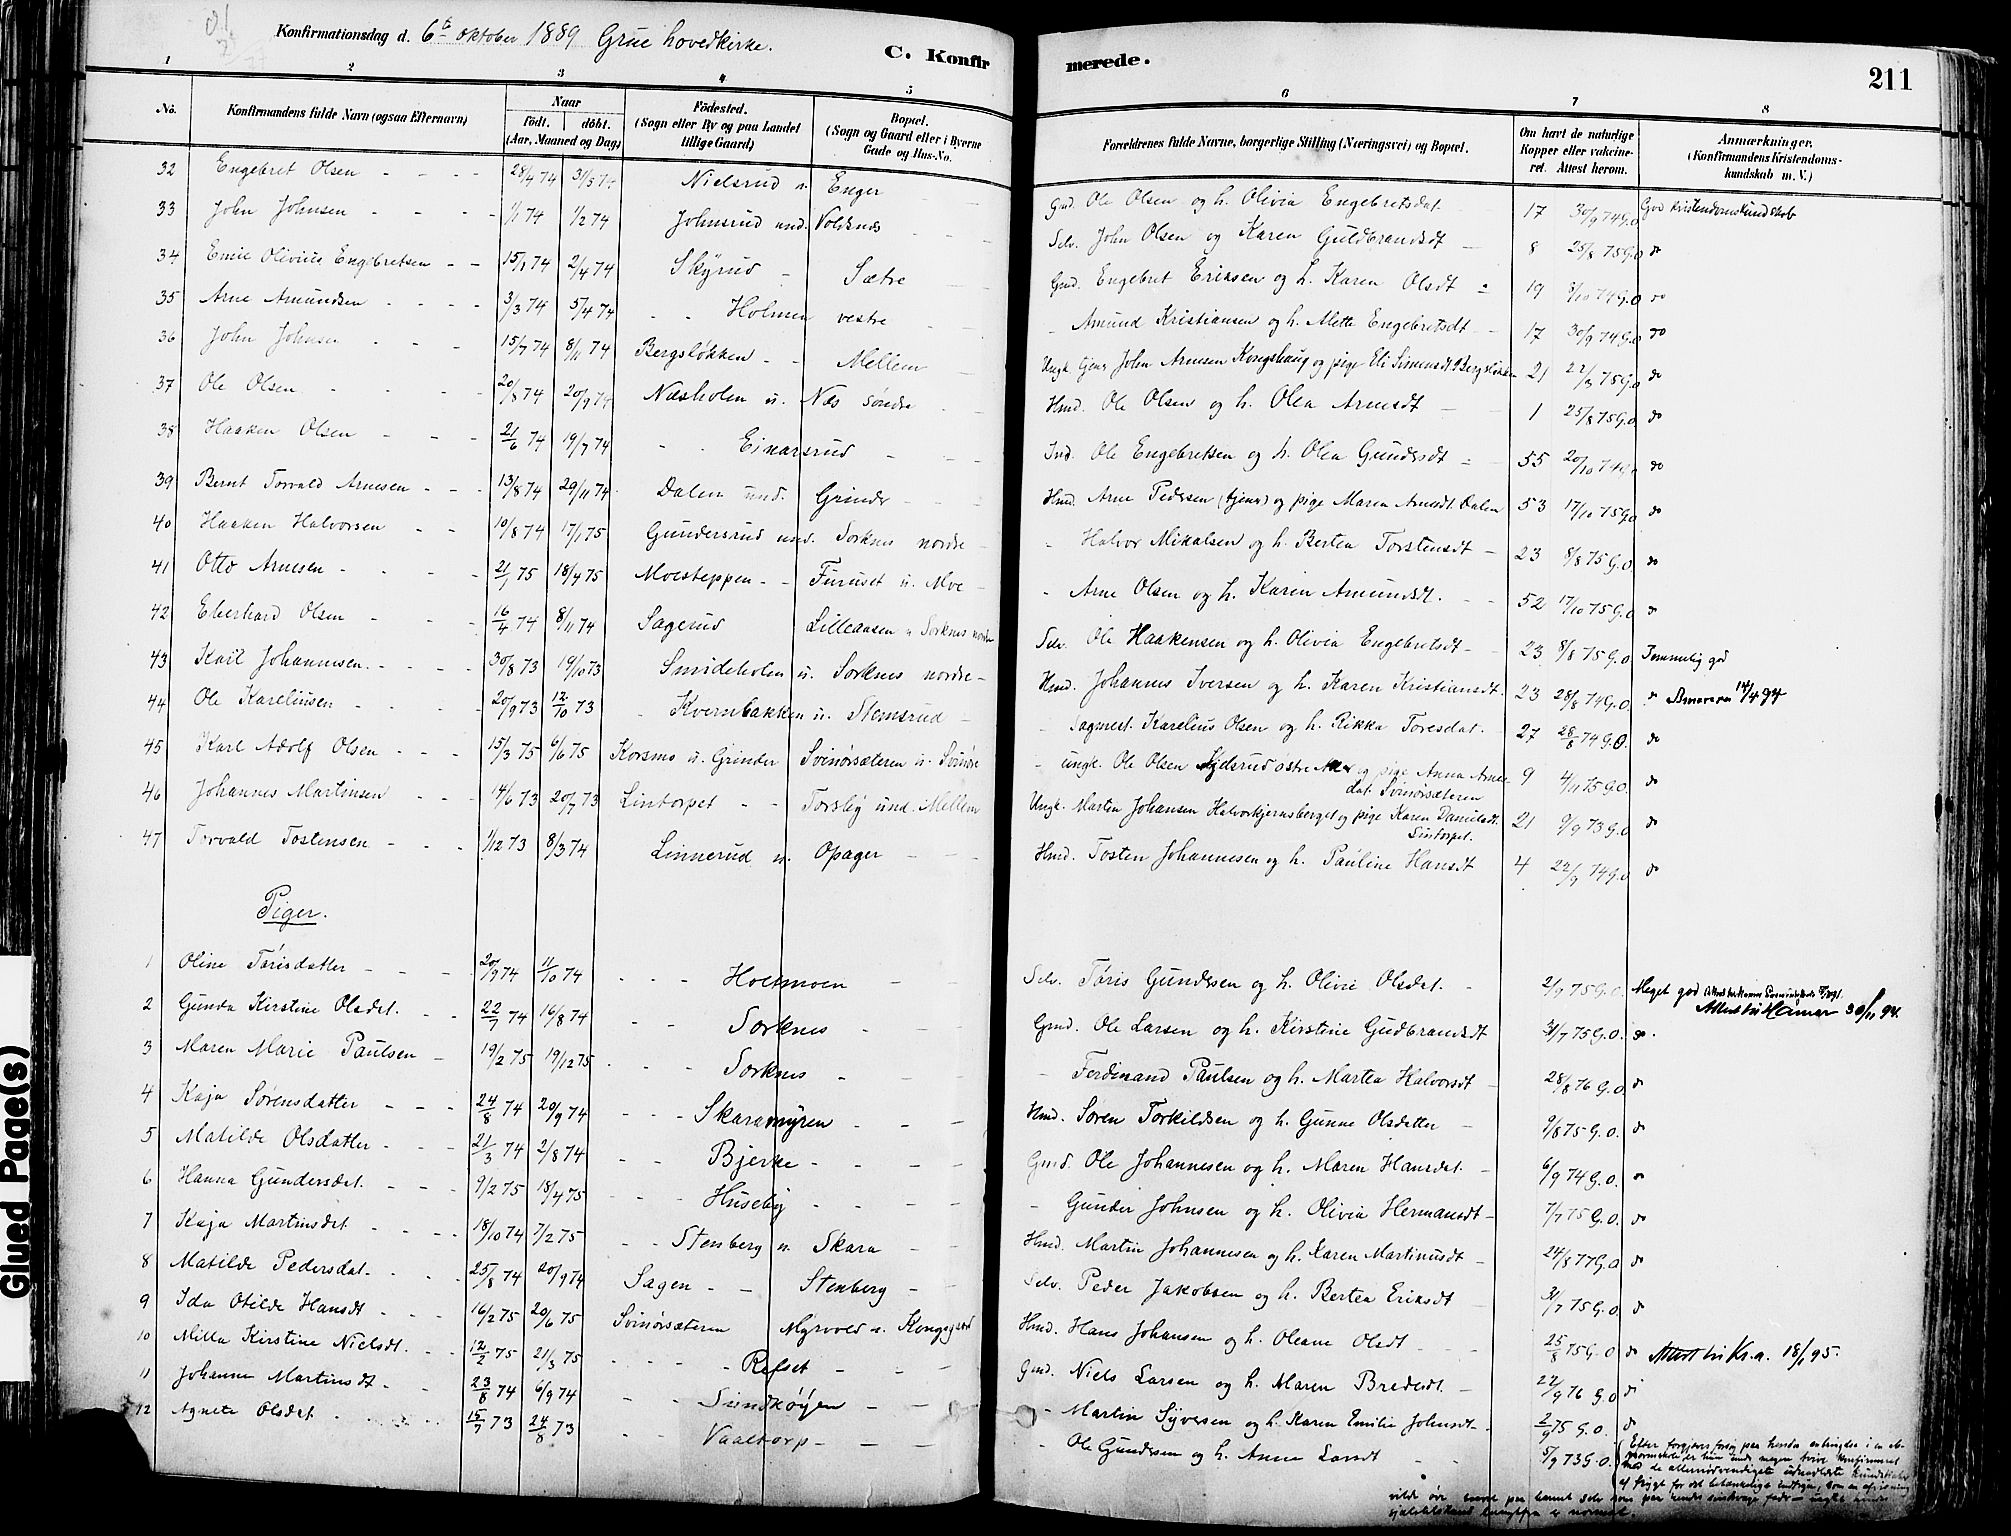 Konfirmationsdag d. 6te oktober 1889 Grue hovedkirke.
C. Konfirmerede.
211
1 2 3 4 5 6 7 8
No. Konfirmandens fulde Navn (ogsaa Efternavn) Naar Födt. döbt. (Aar, Maaned og Dag) Födested. (Sogn eller By og paa Landet tillige Gaard) Bopæl. (Sogn og Gaard eller i Byerne Gade og Hus-No. Forældrenes fulde Navne, borgerlige Stilling (Næringsvei) og Bopæl. Om havt de naturlige Kopper eller vakcineret. Attest herom. Anmærkninger. (Konfirmandens Kristendomskundskab m. V.)
32 Engebret Olsen 28/4 74 31/5 74 Nielsrud u. Enger Gmd. Ole Olsen og h. Olivia Engebretsdat. 17 30/9 74 G.O God Kristendomskundskab
33 John Johnsen 1/1 74 1/2 74 Johnsrud und. Voldnes Selv. John Olsen og Karen Guldbrandsdt 8 25/8 75 G.O do
34 Emil Olivius Engebretsen 15/1 74 2/4 74 Skyrud Sætre Gmd. Engebret Eriksen og h. Karen Olsdt 19 8/10 74 G.O do
35 Arne Amundsen 3/3 74 5/4 74 Holmen vestre Amund Kristiansen og h. Mette Engebretsdt 17 30/9 74 G.O do
36 John Johnsen 15/7 74 8/11 74 Bergsløkken Mellem Ungk. tjener John Arnesen Kongshaug og pige Eli Simensdt. Bergsløkken 21 22/3 75 G.O do
37 Ole Olsen 20/8 74 20/9 74 Næsholen u. Næs søndre Hmd. Ole Olsen og h. Olea Arnesdt 1 25/8 75 G.O do
38 Haaken Olsen 21/6 74 19/7 74 Einarsrud Ind. Ole Engebretsen og h. Olea Gundersdt 55 20/10 74 G.O do
39 Bernt Torvald Arnesen 13/8 74 29/11 74 Dalen und. Grinder Hmd. Arne Pedersen (tjener) og pige Maren Arnesdt. Dalen 53 17/10 75 G.O do
40 Haaken Halvorsen 10/8 74 17/1 75 Gundersrud und. Sorknes nordre Halvor Mikalsen og h. Bertea Torstensdt 23 8/8 75 G.O do
41 Otto Arnesen 21/1 75 18/4 75 Moesteppen Furuset u. Moe Arne Olsen og h. Karen Amundsdt. 52 17/10 75 G.O do
42 Eberhard Olsen 16/4 74 8/11 74 Sagerud Lilleaasen u Sorknes nordre Selv. Ole Haakensen og h. Olivia Engebretsdt 23 8/8 75 G.O. Temmelig god
43 Karl Johannesen 30/8 73 19/10 73 Smideholen u. Sorknes nordre Hmd. Johannes Iversen og h. Karen Kristiansdt. 23 28/8 74 G.O. do 14/4 94
44 Ole Kareliusen 20/9 73 12/10 73 Kvernbakken u. Stemsrud Sagmest. Karelius Olsen og h. Rikka Toresdat. 27 28/8 74 G.O. do
45 Karl Adolf Olsen 15/3 75 6/6 75 Korsmo u. Grinder Svinørsæteren u. Svinør ungk. Ole Olsen østre og pige Anna Arnesdat. Svinørsæteren 9 4/11 75 G.O. do
46 Johannes Martinsen 14/6 73 20/7 73 Lintorpet Torsby und. Mellem Ungk. Martin Johansen Halvorkjernsberget og pige Karen Danielsdt. Lintorpet. 21 9/9 73 G.O do
47 Torvald Tostensen 1/12 73 8/3 74 Linnerud u. Opager Hmd. Tosten Johannesen og h. Pauline Hansdt 4 22/9 74 G.O do
Piger.
1 Oline Tørisdatter 20/9 74 11/10 74 Holtmoen Selv. Tøris Gundersen og h. Olivie Olsdat. 2/9 75 G.O. Meget god
2 Gunda Kirstine Olsdat. 22/7 74 16/8 74 Sorknes Gmd. Ole Larsen og h. Kirstine Gudbrandsdt 31/7 75 G.O. do. Attest til Hamar 30/11 94.
3 Maren Marie Paulsen 19/2 75 19/12 75 Sorknes Ferdinand Paulsen og h. Martea Halvorsdt 28/8 76 G.O do
4 Kaja Sørensdatter 24/8 74 20/9 74 Skaramyren Hmd. Søren Torkildsen og h. Gunne Olsdatter 9/8 75 G.O. do
5 Matilde Olsdatter 21/3 74 2/8 74 Bjerke Gmd. Ole Johannesen og h. Maren Hansdat. 6/9 74 G.O. do
6 Hanna Gundersdat. 9/2 75 18/4 75 Huseby Gunder Johnsen og h. Olivia Hermansdt 7/7 75 G.O. do
7 Kaja Martinsdat 18/10 74 7/2 75 Stenberg u. Skara Hmd. Martin Johannesen og h. Karen Martinusdt 24/8 77 G.O do
8 Matilde Pedersdat. 25/8 74 20/9 74 Sagen Stenberg Selv. Peder Jakobsen og h. Bertea Eriksdt 31/7 75 G.O. do
9 Ida Otilde Hansdt 16/2 75 20/6 75 Svinørsæteren Myrvold u. Kongsgaard Hmd. Hans Johansen og h. Oleane Olsdt 25/8 75 G.O do Attest til Kr.a. 18/1 95.
10 Milla Kirstine Nielsdt. 12/2 75 21/3 75 Refset Gmd. Niels Larsen og h. Maren Bredesdt. 22/9 76 G.O do
11 Johanne Martinsdt 23/8 74 6/9 74 Sundkøien Martin Syversen og h. Karen Emilie Johnsdt 2/9 75 G.O. do
12 Agnete Olsdat 15/7 73 24/8 73 Vaaltorp Ole Gundersen og h. Anne Larsdt 5/9 73 G.O.
Glued Page(s)